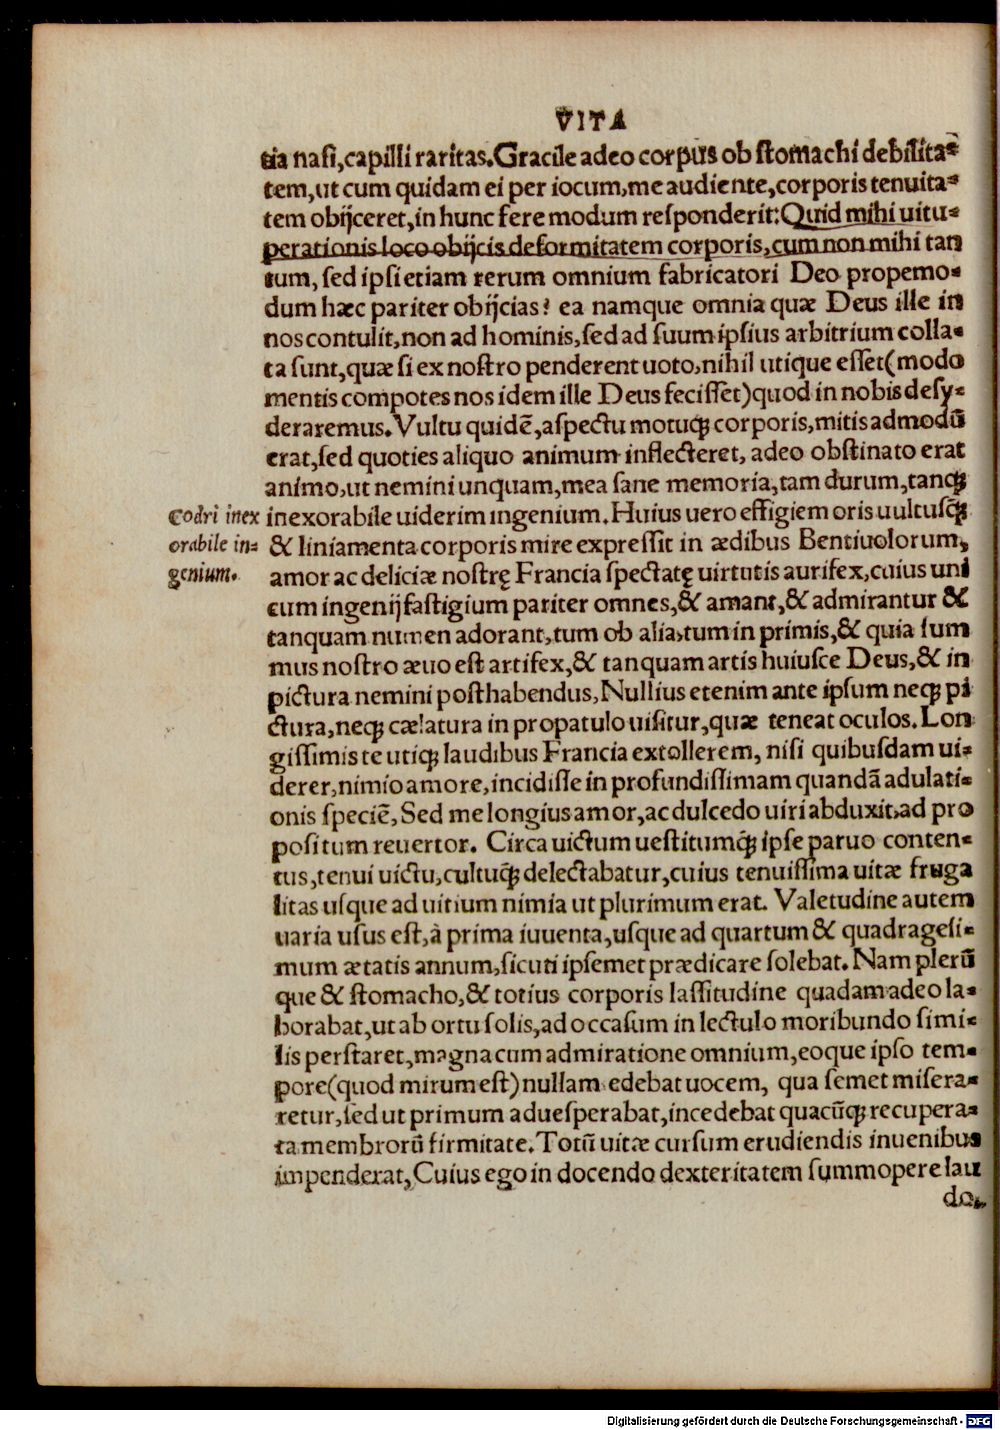 VITA
tia nasi, capilli raritas. Gracile adeo corpus ob ſtomachi debilita-
tem, ut cum quidam ei per iocum, me audiente, corporis tenuita-
tem obijceret, in hunc fere modum reſponderit: Quid mihi uitu-
perationis loco obijcis deformitatem corporis, cum non mihi tan
tum, ſed ipſi etiam rerum omnium fabricatori Deo propemo-
dum hæc pariter obijcias? ea namque omnia quæ Deus ille in
nos contulit, non ad hominis, ſed ad ſuum ipſius arbitrium colla-
ta ſunt, quæ ſi ex noſtro penderent uoto, nihil utique eſſet (modo
mentis compotes nos idem ille Deus feciſſet) quod in nobis deſy-
deraremus. Vultu quidē, aſpectu motuq; corporis, mitis admodū
erat, ſed quoties aliquo animum inflecteret, adeo obſtinato erat
animo, ut nemini unquam, mea ſane memoria, tam durum, tanq;
Codri inex
orabile in-
genium.
inexorabile uiderim ingenium. Huius uero effigiem oris uultuſq;
& liniamenta corporis mire expreſſit in ædibus Bentiuolorum,
amor ac deliciæ noſtrę Francia ſpectatę uirtutis aurifex, cuius uni
cum ingenij faſtigium pariter omnes, & amant, & admirantur &
tanquam numen adorant, tum ob alia, tum in primis, & quia ſum
mus noſtro æuo eſt artifex, & tanquam artis huiuſce Deus, & in
pictura nemini poſthabendus, Nullius etenim ante ipſum neq; pi
ctura, neq; cælatura in propatulo uiſitur, quæ teneat oculos. Lon
giſſimis te utiq; laudibus Francia extollerem, niſi quibuſdam ui-
derer, nimio amore, incidiſſe in profundiſſimam quandā adulati-
onis ſpeciē, Sed me longius amor, ac dulcedo uiri abduxit, ad pro
poſitum reuertor. Circa uictum ueſtitumq; ipſe paruo conten-
tus, tenui uictu, cultuq; delectabatur, cuius tenuiſſima uitæ fruga
litas uſque ad uitium nimia ut plurimum erat. Valetudine autem
uaria uſus eſt, à prima iuuenta, uſque ad quartum & quadrageſi-
mum ætatis annum, ſicuti ipſemet prædicare ſolebat. Nam plerū
que & ſtomacho, & totius corporis laſſitudine quadam adeo la-
borabat, ut ab ortu ſolis, ad occaſum in lectulo moribundo ſimi-
lis perſtaret, magna cum admiratione omnium, eoque ipſo tem-
pore (quod mirum eſt) nullam edebat uocem, qua ſemet miſera-
retur, ſed ut primum adueſperabat, incedebat quacūq; recupera-
ta membrorū firmitate. Totū uitæ curſum erudiendis iuuenibus
impenderat, Cuius ego in docendo dexteritatem ſummopere lau
do,
Digitalisierung gefördert durch die Deutsche Forschungsgemeinschaft - DFG